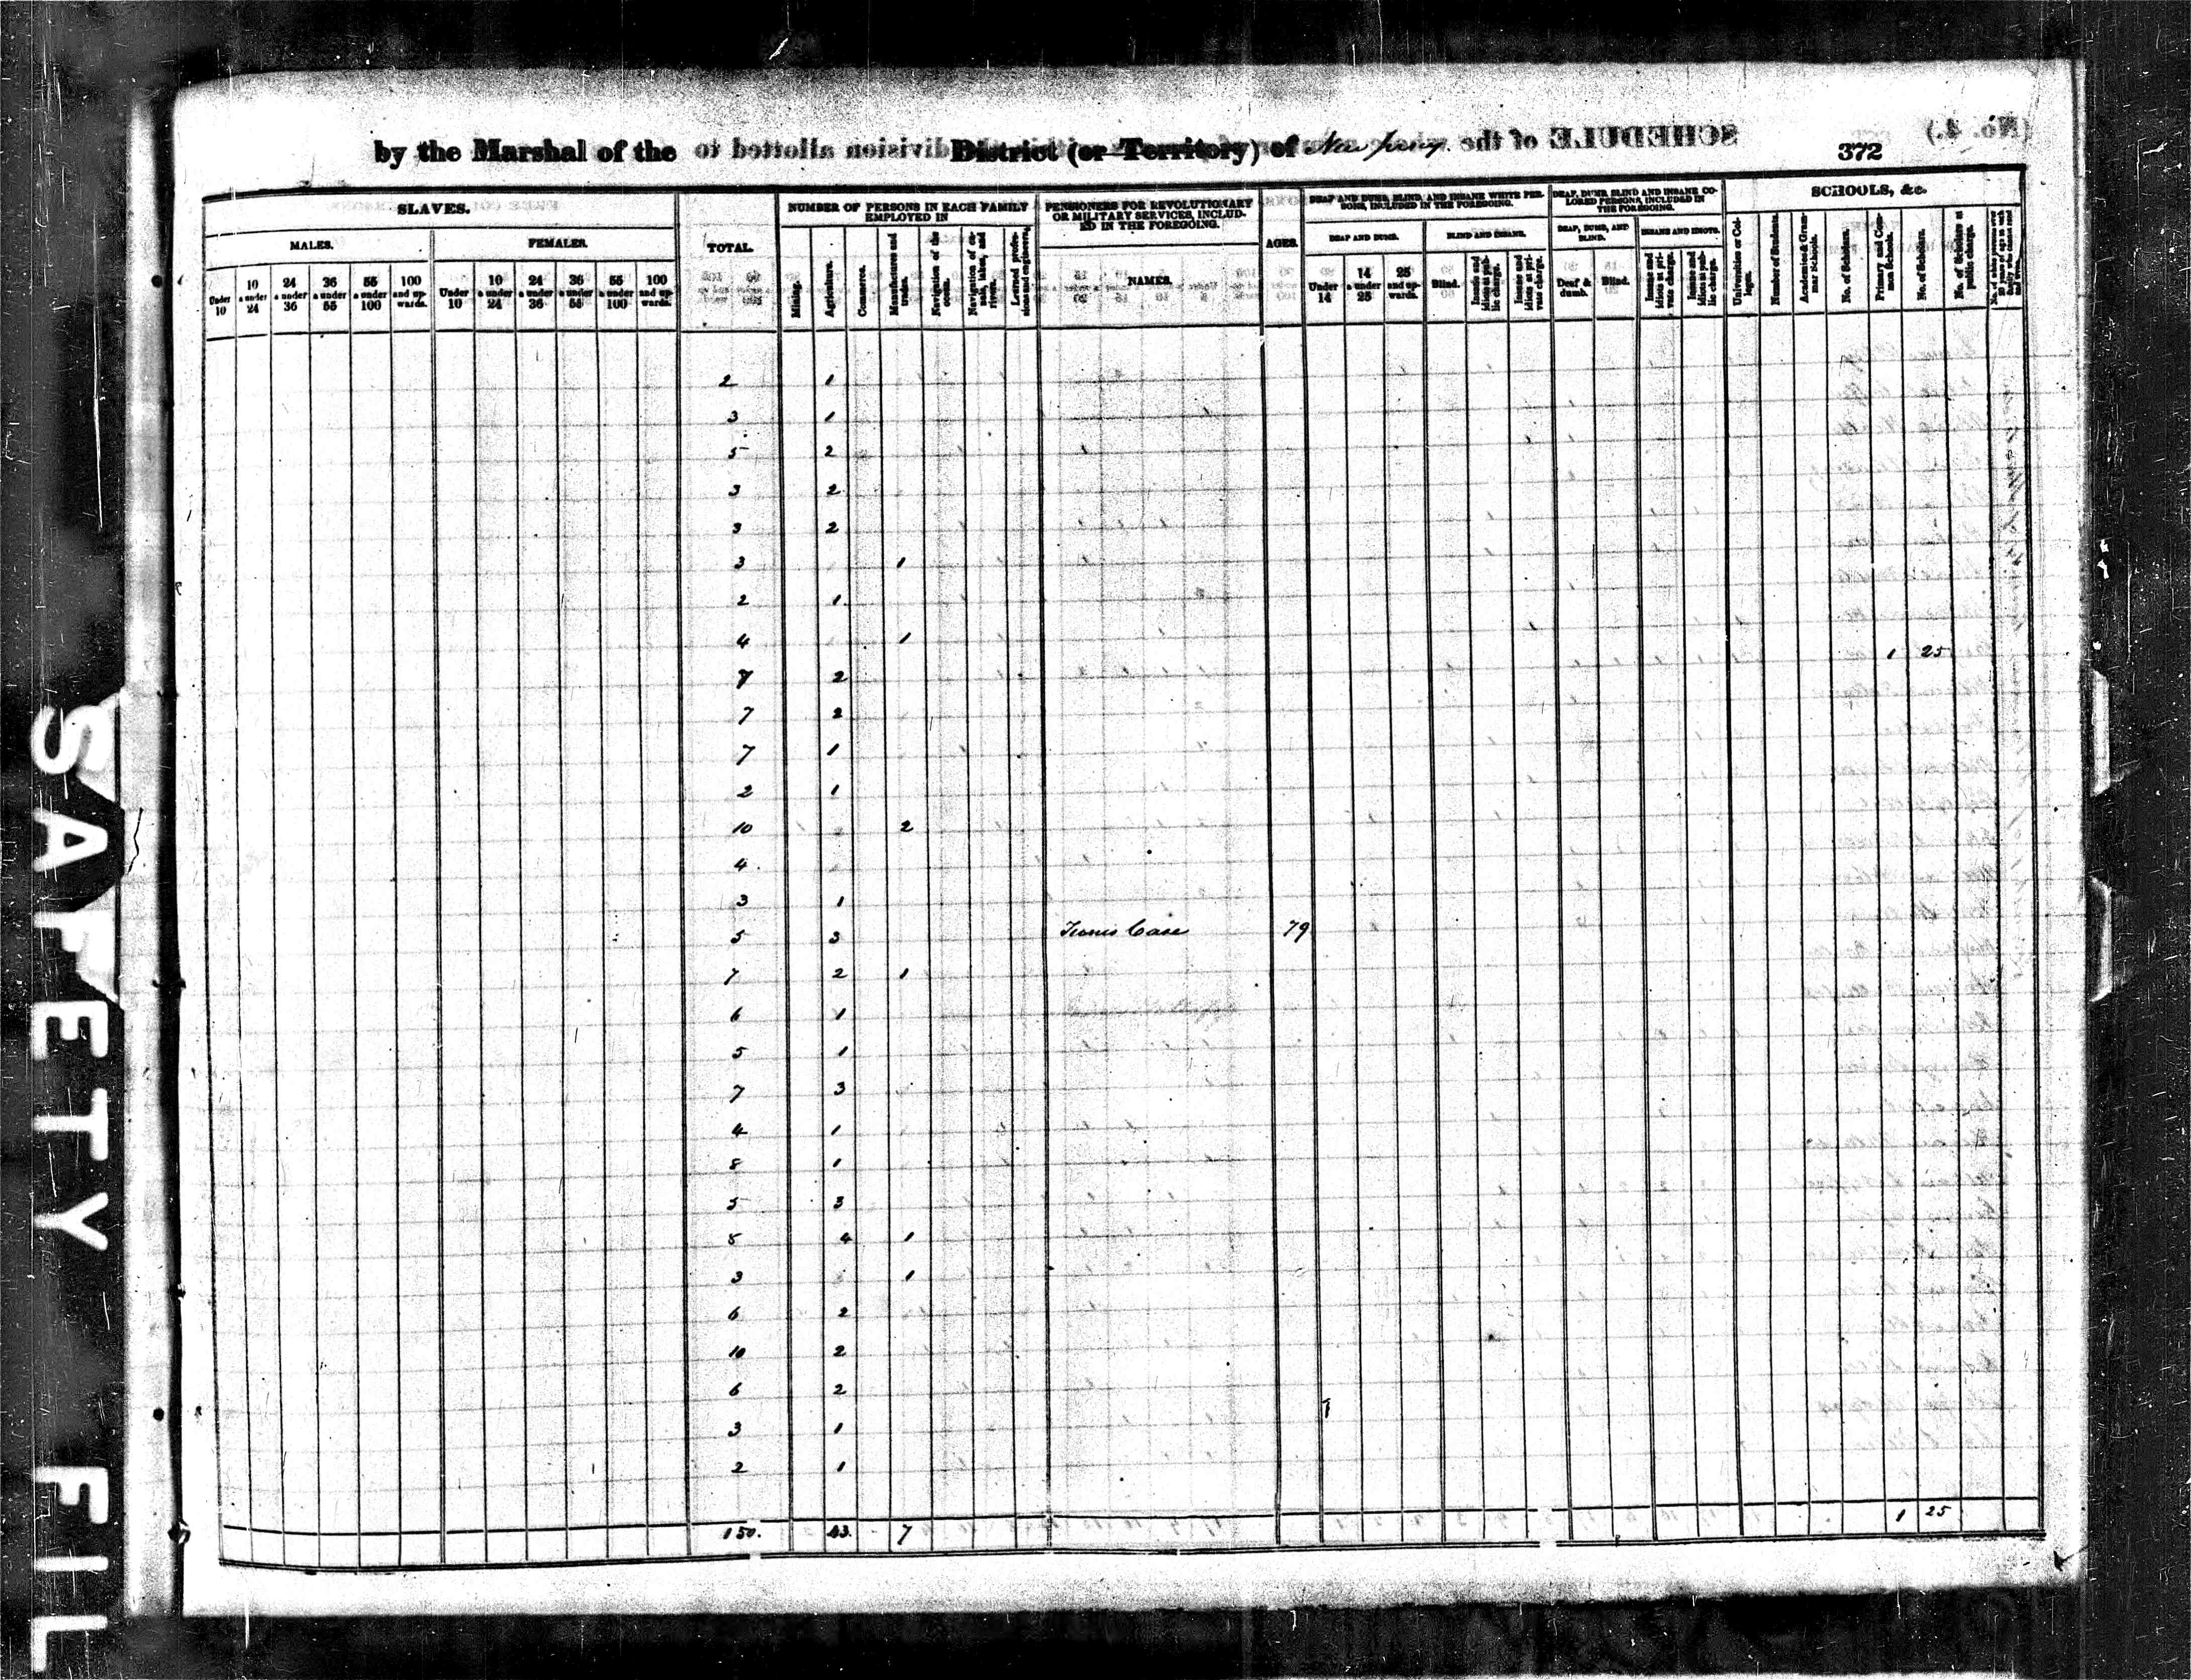 by the Marshal of the District (or Territory) of New Jersey. 372
SLAVES.
MALES. FEMALES.
Under 10
10 a under 24
24 a under 36
36 a under 55
55 a under 100
100 and upwards.
Under 10
10 a under 24
24 a under 36
36 a under 55
55 a under 100
100 and upwards.
TOTAL.
NUMBER OF PERSONS IN EACH FAMILY EMPLOYED IN
Mining.
Agriculture.
Commerce.
Manufactures and trades.
Navigation of the ocean.
Navigation of canals, lakes, and rivers.
Learned professions and engineers.
PENSIONERS FOR REVOLUTIONARY OR MILITARY SERVICES, INCLUDED IN THE FOREGOING.
NAMES.
AGES.
DEAF AND DUMB, BLIND, AND INSANE WHITE PERSONS, INCLUDED IN THE FOREGOING.
DEAF AND DUMB.
Under 14
14 a under 25
25 and upwards.
BLIND AND INSANE.
Blind.
Insane and idiots at public charge.
Insane and idiots at private charge.
DEAF, DUMB, BLIND AND INSANE COLORED PERSONS, INCLUDED IN THE FOREGOING.
DEAF, DUMB, AND BLIND.
Deaf & dumb.
Blind.
INSANE AND IDIOTS.
Insane and idiots at private charge.
Insane and idiots at public charge.
SCHOOLS, &c.
Universities or Colleges.
Number of Students.
Academies & Grammar Schools.
No. of Scholars.
Primary and Common Schools.
No. of Scholars.
No. of Scholars at public charge.
2 1
3 1
5 2
3 2
3 2
3 1
2 1
4 1
1 25
2
7 2
7 1
2 1
10 2
4
3 1
5 3 Tunis Case 79
7 2 1
6 1
5 1
7 3
4 1
8 1
5 3
4 1
3 1
6 2
10 2
6 2
3 1
2 1
150. 43. 7 1 25
SAFETY FIL